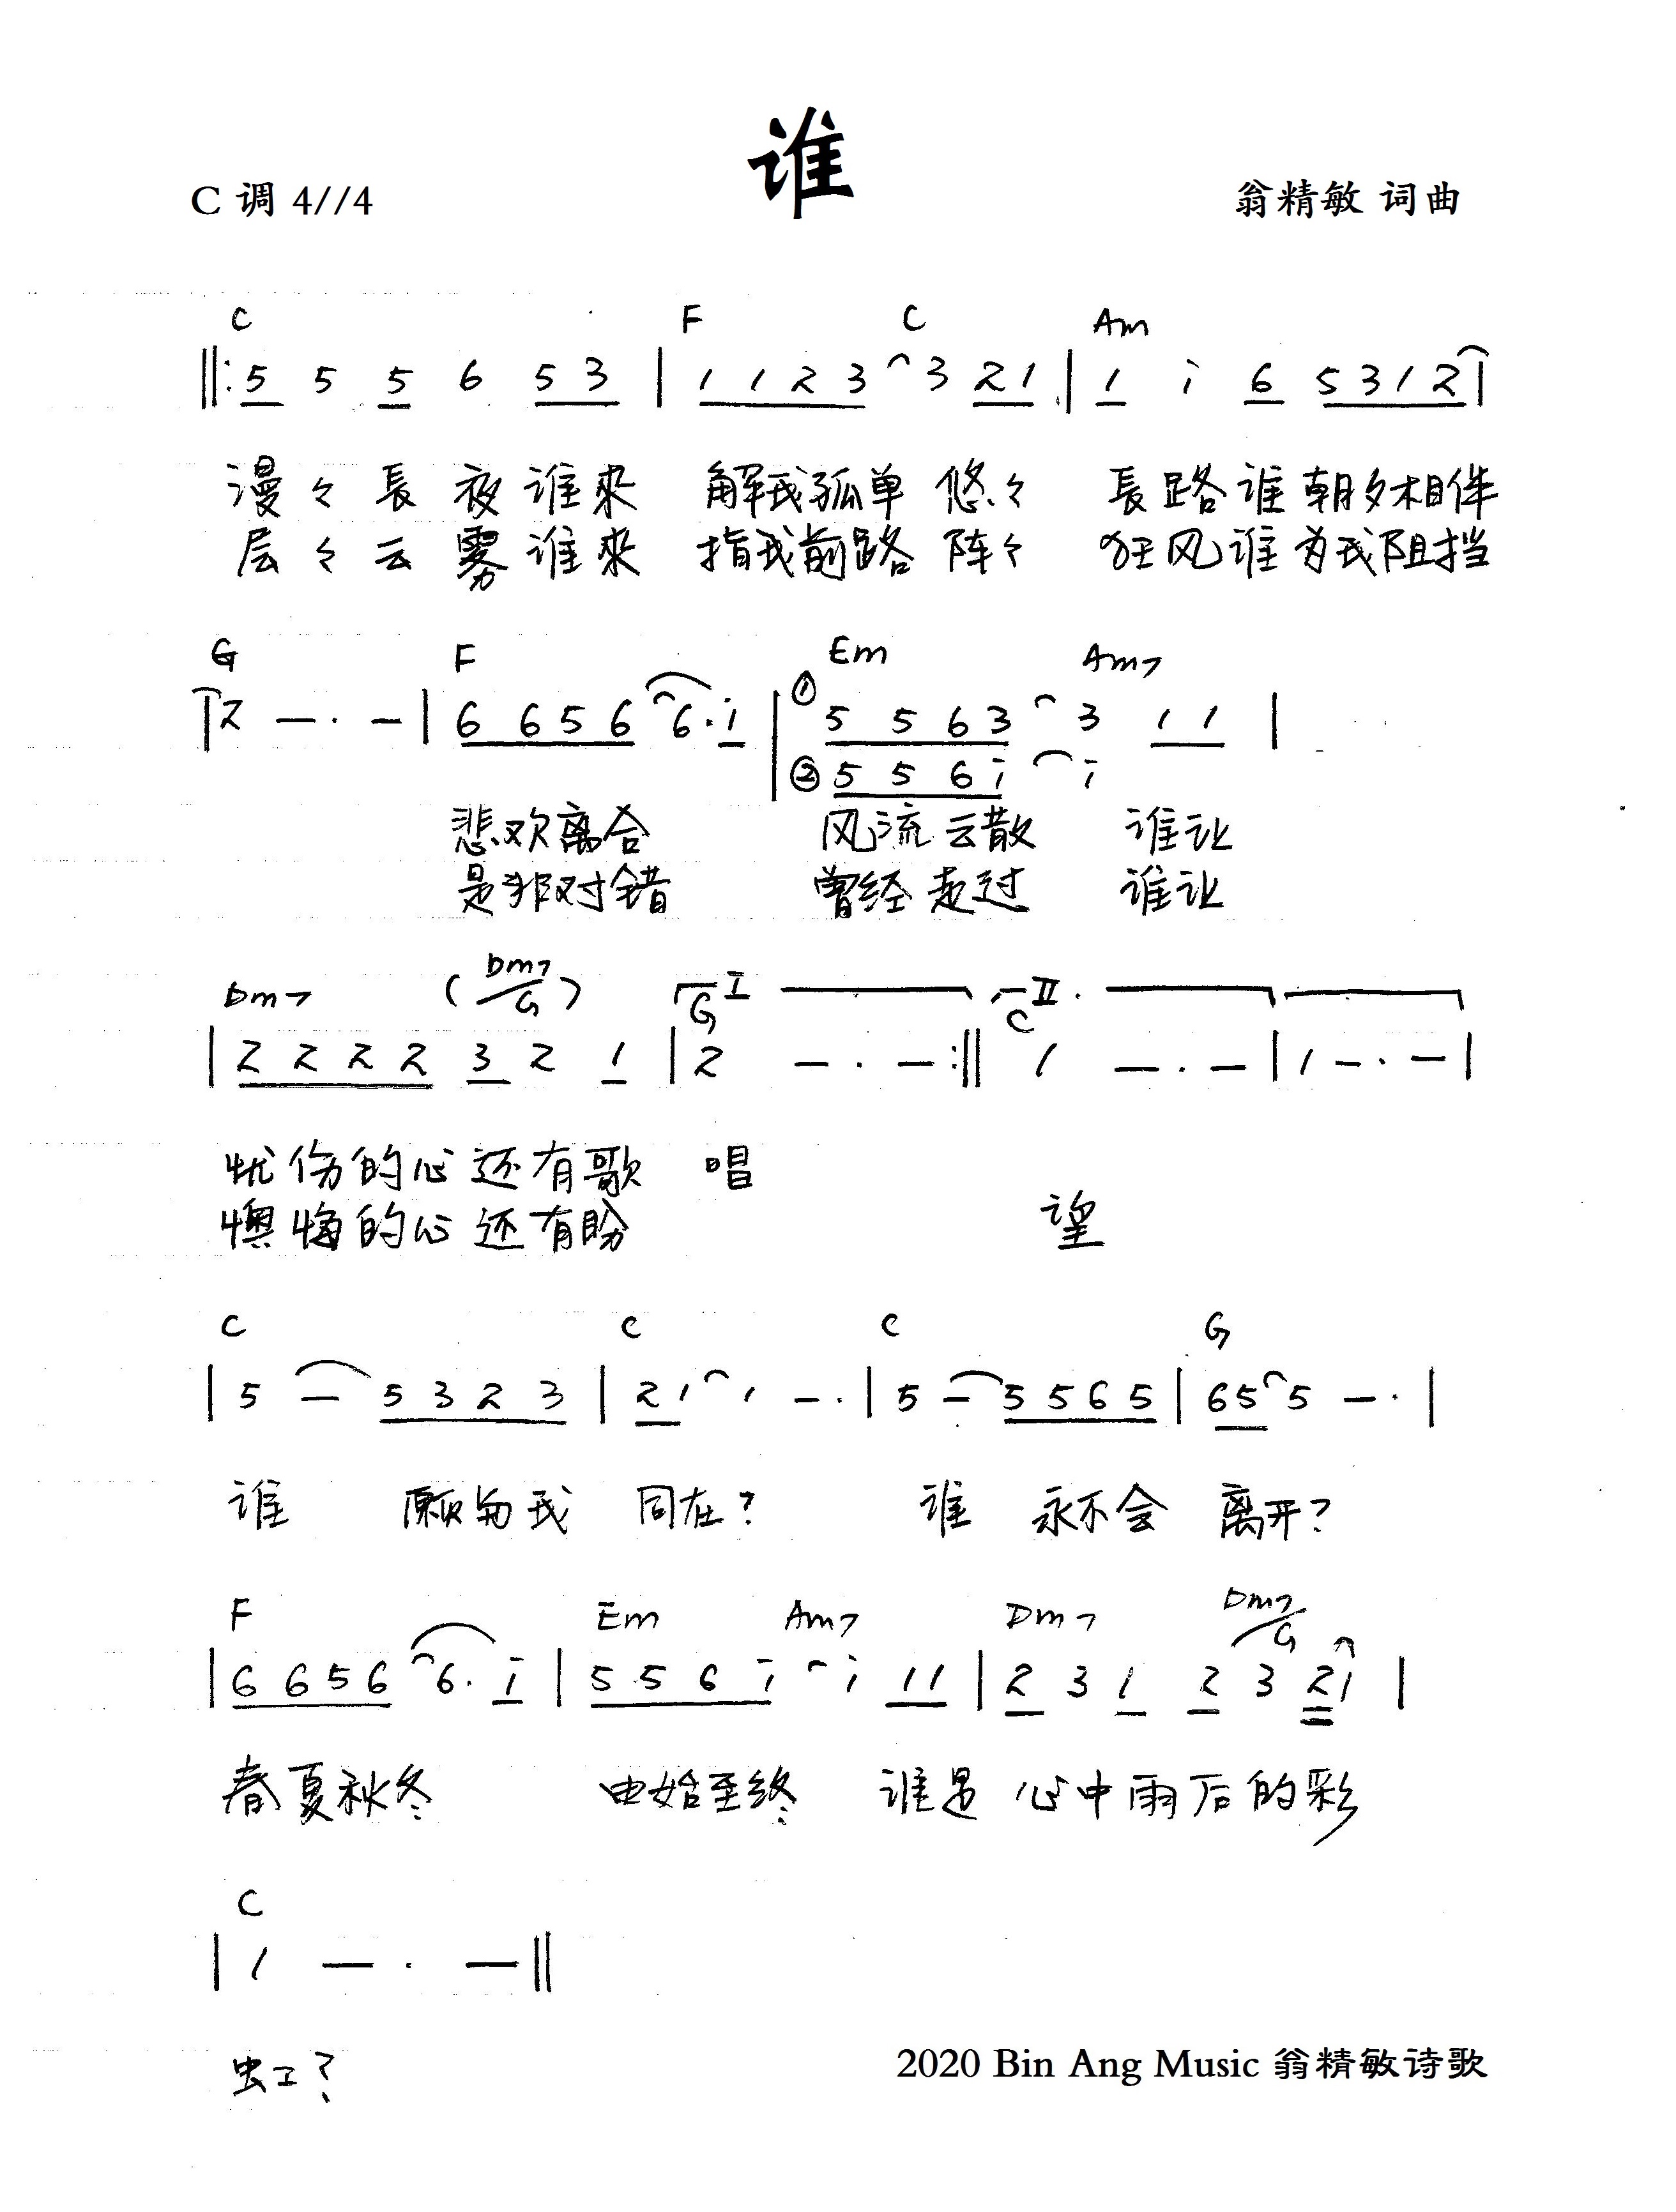 谁
C 调 4//4
翁精敏 词曲
C F C Am
‖: 5 5 5 6 5 3 | 1 1 2 3 3 2 1 | 1 i 6 5 3 1 2 |
漫々長夜谁来 解我孤单 悠々 長路谁朝夕相伴
层々云雾谁来 指我前路 阵々 狂风谁为我阻挡
G F Em Am7
| 2 — · — | 6 6 5 6 6 · i | ① 5 5 6 3 3 1 1 |
② 5 5 6 i i
悲欢离合 风流云散 谁让
是非对错 曾经走过 谁让
Dm7 (Dm7/G) G I C II
| 2 2 2 2 3 2 1 | 2 — · — :‖ 1 — · — | 1 — · — |
忧伤的心还有歌 唱
懊悔的心还有盼 望
C C C G
| 5 — 5 3 2 3 | 2 1 1 — · | 5 — 5 5 6 5 | 6 5 5 — · |
谁 願与我 同在? 谁 永不会 离开?
F Em Am7 Dm7 Dm7/G
| 6 6 5 6 6 · i | 5 5 6 i i 1 1 | 2 3 1 2 3 2 1 |
春夏秋冬 由始至终 谁是 心中雨后的彩
C
| 1 — · — ‖
虹?
2020 Bin Ang Music 翁精敏诗歌